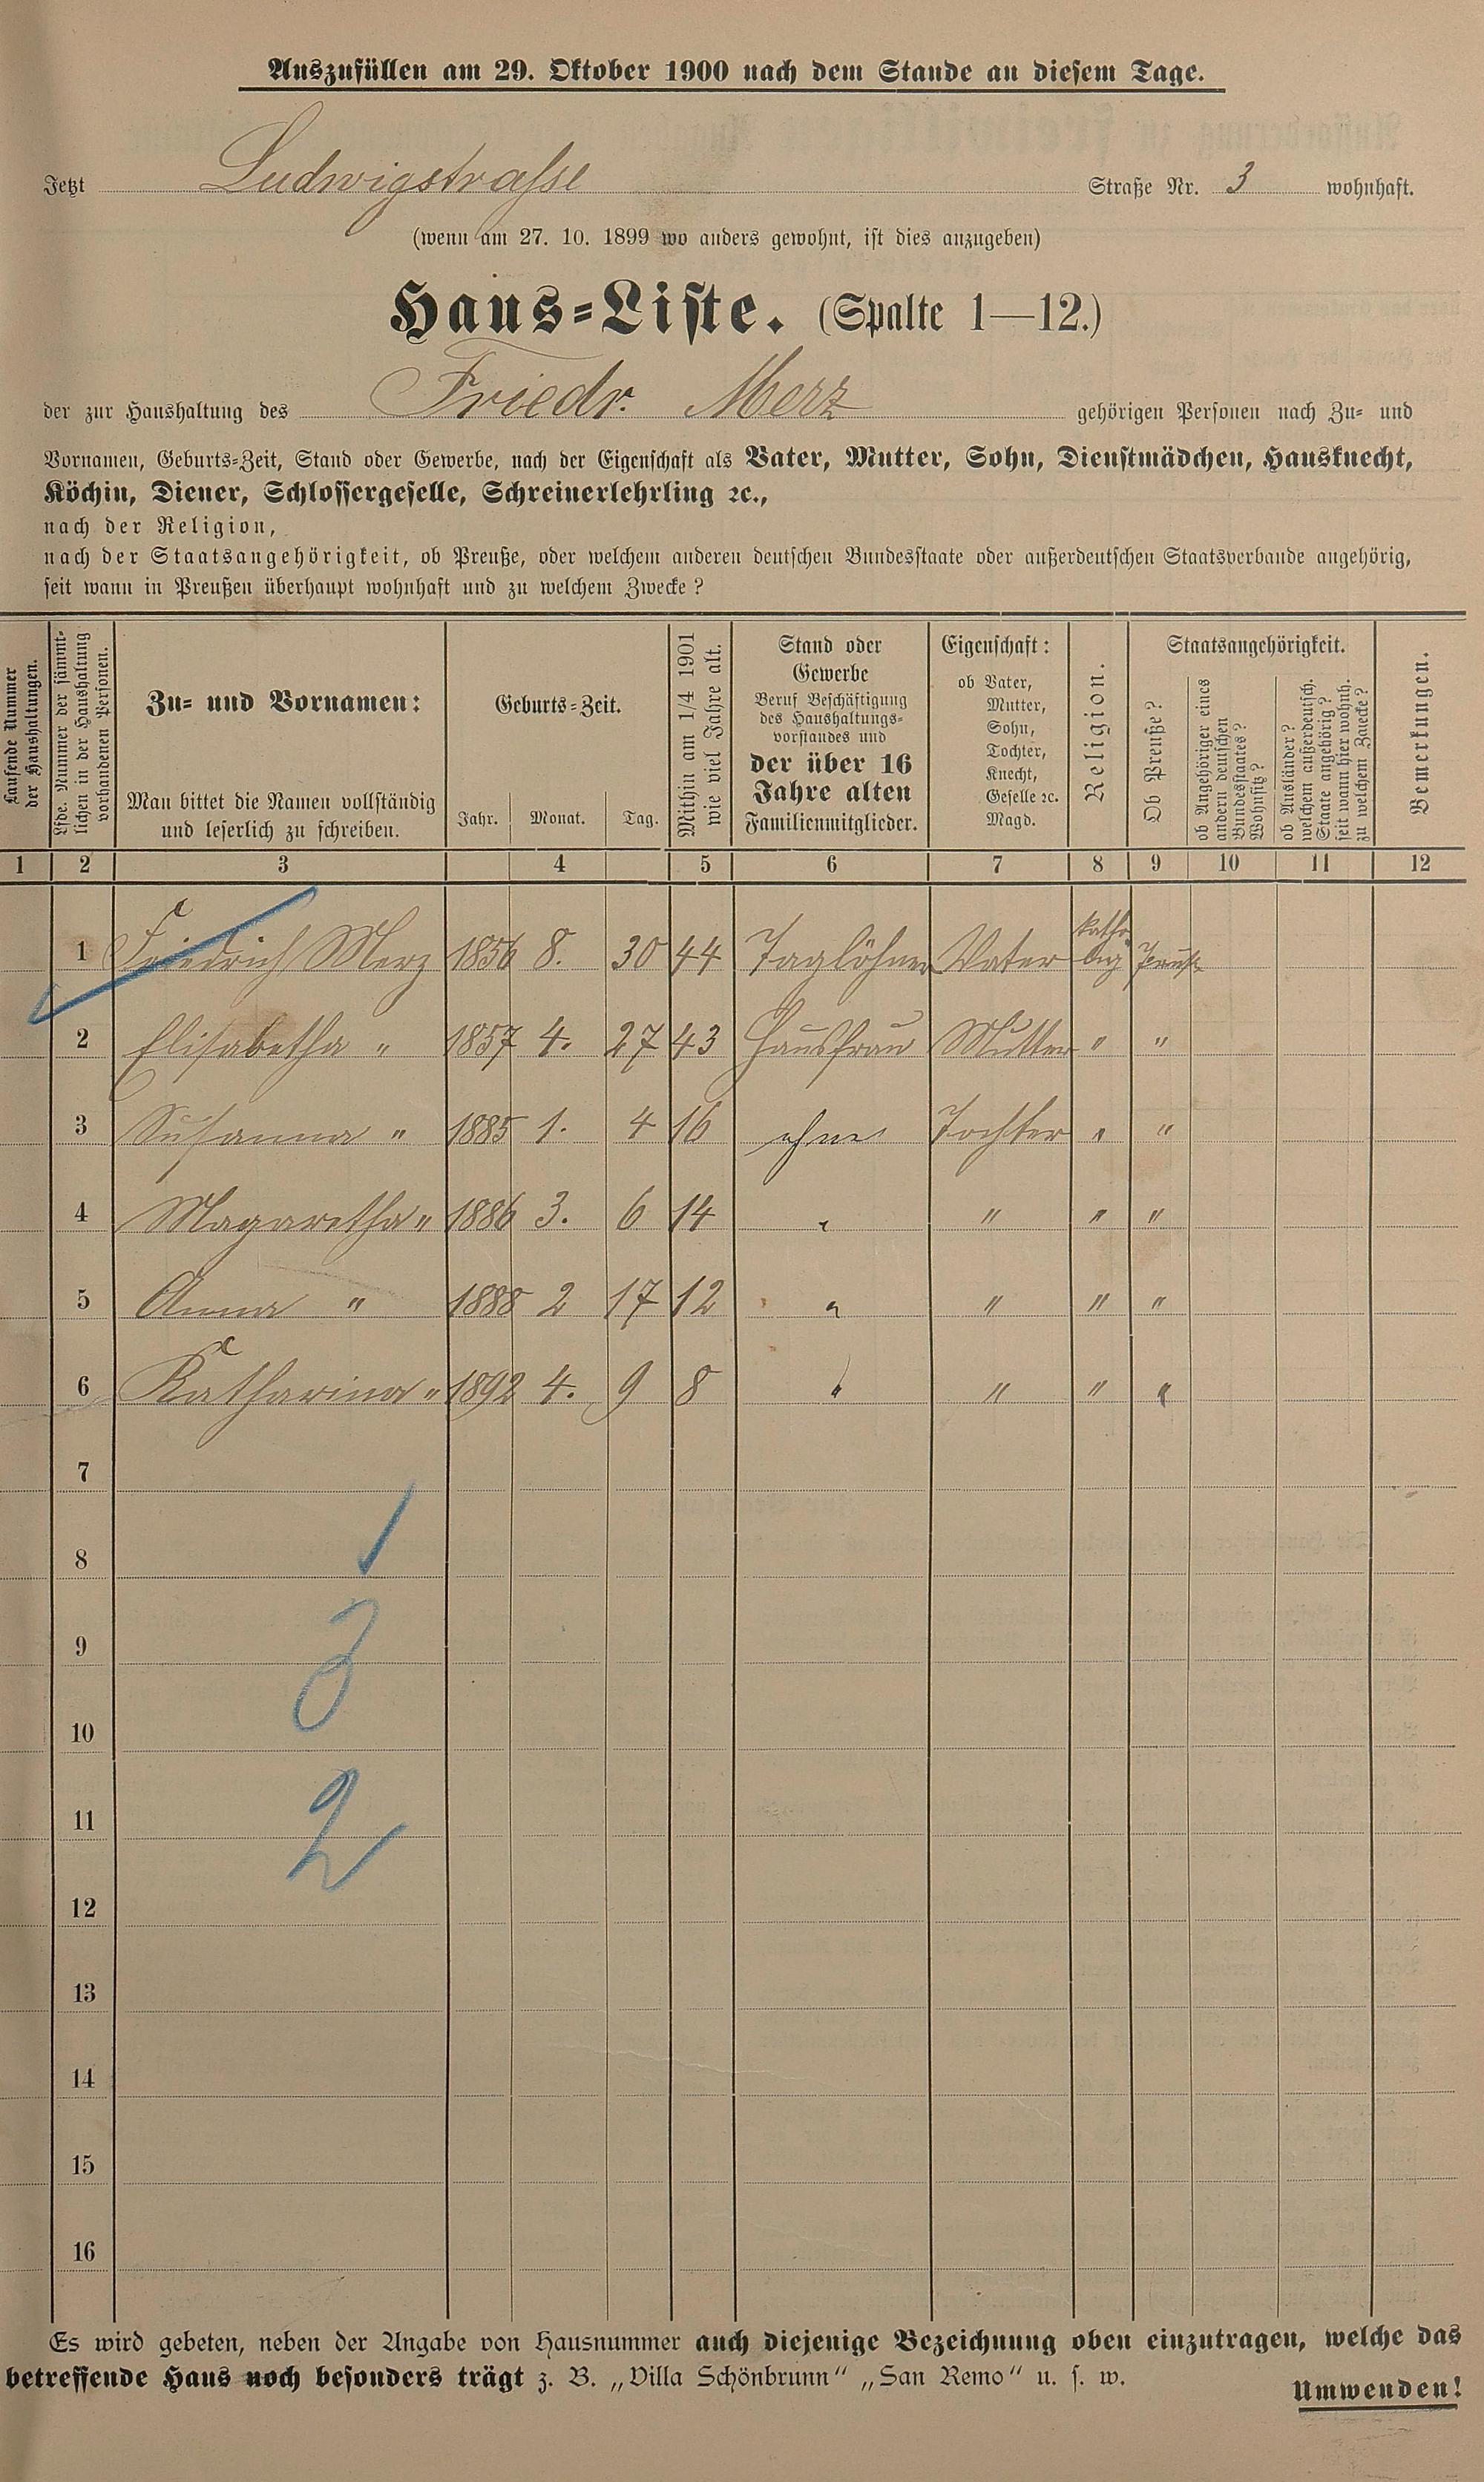 Auszufüllen am 29. Oktober 1900 nach dem Stande an diesem Tage.
Jetzt Ludwigstraße Straße Nr. 3 wohnhaft.
(wenn am 27. 10. 1899 wo anders gewohnt, ist dies anzugeben)
Haus-Liste. (Spalte 1—12.)
der zur Haushaltung des Friedr. Merz gehörigen Personen nach Zu- und
Vornamen, Geburts-Zeit, Stand oder Gewerbe, nach der Eigenschaft als Vater, Mutter, Sohn, Dienstmädchen, Hausknecht,
Köchin, Diener, Schlossergeselle, Schreinerlehrling ꝛc.,
nach der Religion,
nach der Staatsangehörigkeit, ob Preuße, oder welchem anderen deutschen Bundesstaate oder außerdeutschen Staatsverbande angehörig,
seit wann in Preußen überhaupt wohnhaft und zu welchem Zwecke?
Laufende Nummer
der Haushaltungen.
Lfde. Nummer der sämmt-
lichen in der Haushaltung
vorhandenen Personen.
Zu- und Vornamen:
Man bittet die Namen vollständig
und leserlich zu schreiben.
Geburts-Zeit.
Jahr. Monat. Tag.
Mithin am 1/4 1901
wie viel Jahre alt.
Stand oder
Gewerbe
Beruf Beschäftigung
des Haushaltungs-
vorstandes und
der über 16
Jahre alten
Familienmitglieder.
Eigenschaft:
ob Vater,
Mutter,
Sohn,
Tochter,
Knecht,
Geselle ꝛc.
Magd.
Religion.
Staatsangehörigkeit.
Ob Preuße?
ob Angehöriger eines
andern deutschen
Bundesstaates?
Wohnsitz?
ob Ausländer?
welchem außerdeutsch.
Staate angehörig?
seit wann hier wohnh.
zu welchem Zwecke?
Bemerkungen.
1 2 3 4 5 6 7 8 9 10 11 12
1 Friedrich Merz 1856 8. 30 44 Taglöhner Vater
2 Elisabetha " 1857 4. 27 43 Hausfrau Mutter " "
3 Susanna " 1885 1. 4 16 ohne Tochter " "
4 Magaretha " 1886 3. 6 14 " " " "
5 Anna " 1888 2 17 12 " " " "
6 Katharina " 1892 4. 9 8 " " " "
7
8
9
10
11
12
13
14
15
16
Es wird gebeten, neben der Angabe von Hausnummer auch diejenige Bezeichnung oben einzutragen, welche das
betreffende Haus noch besonders trägt z. B. „Villa Schönbrunn“ „San Remo“ u. s. w.
Umwenden!